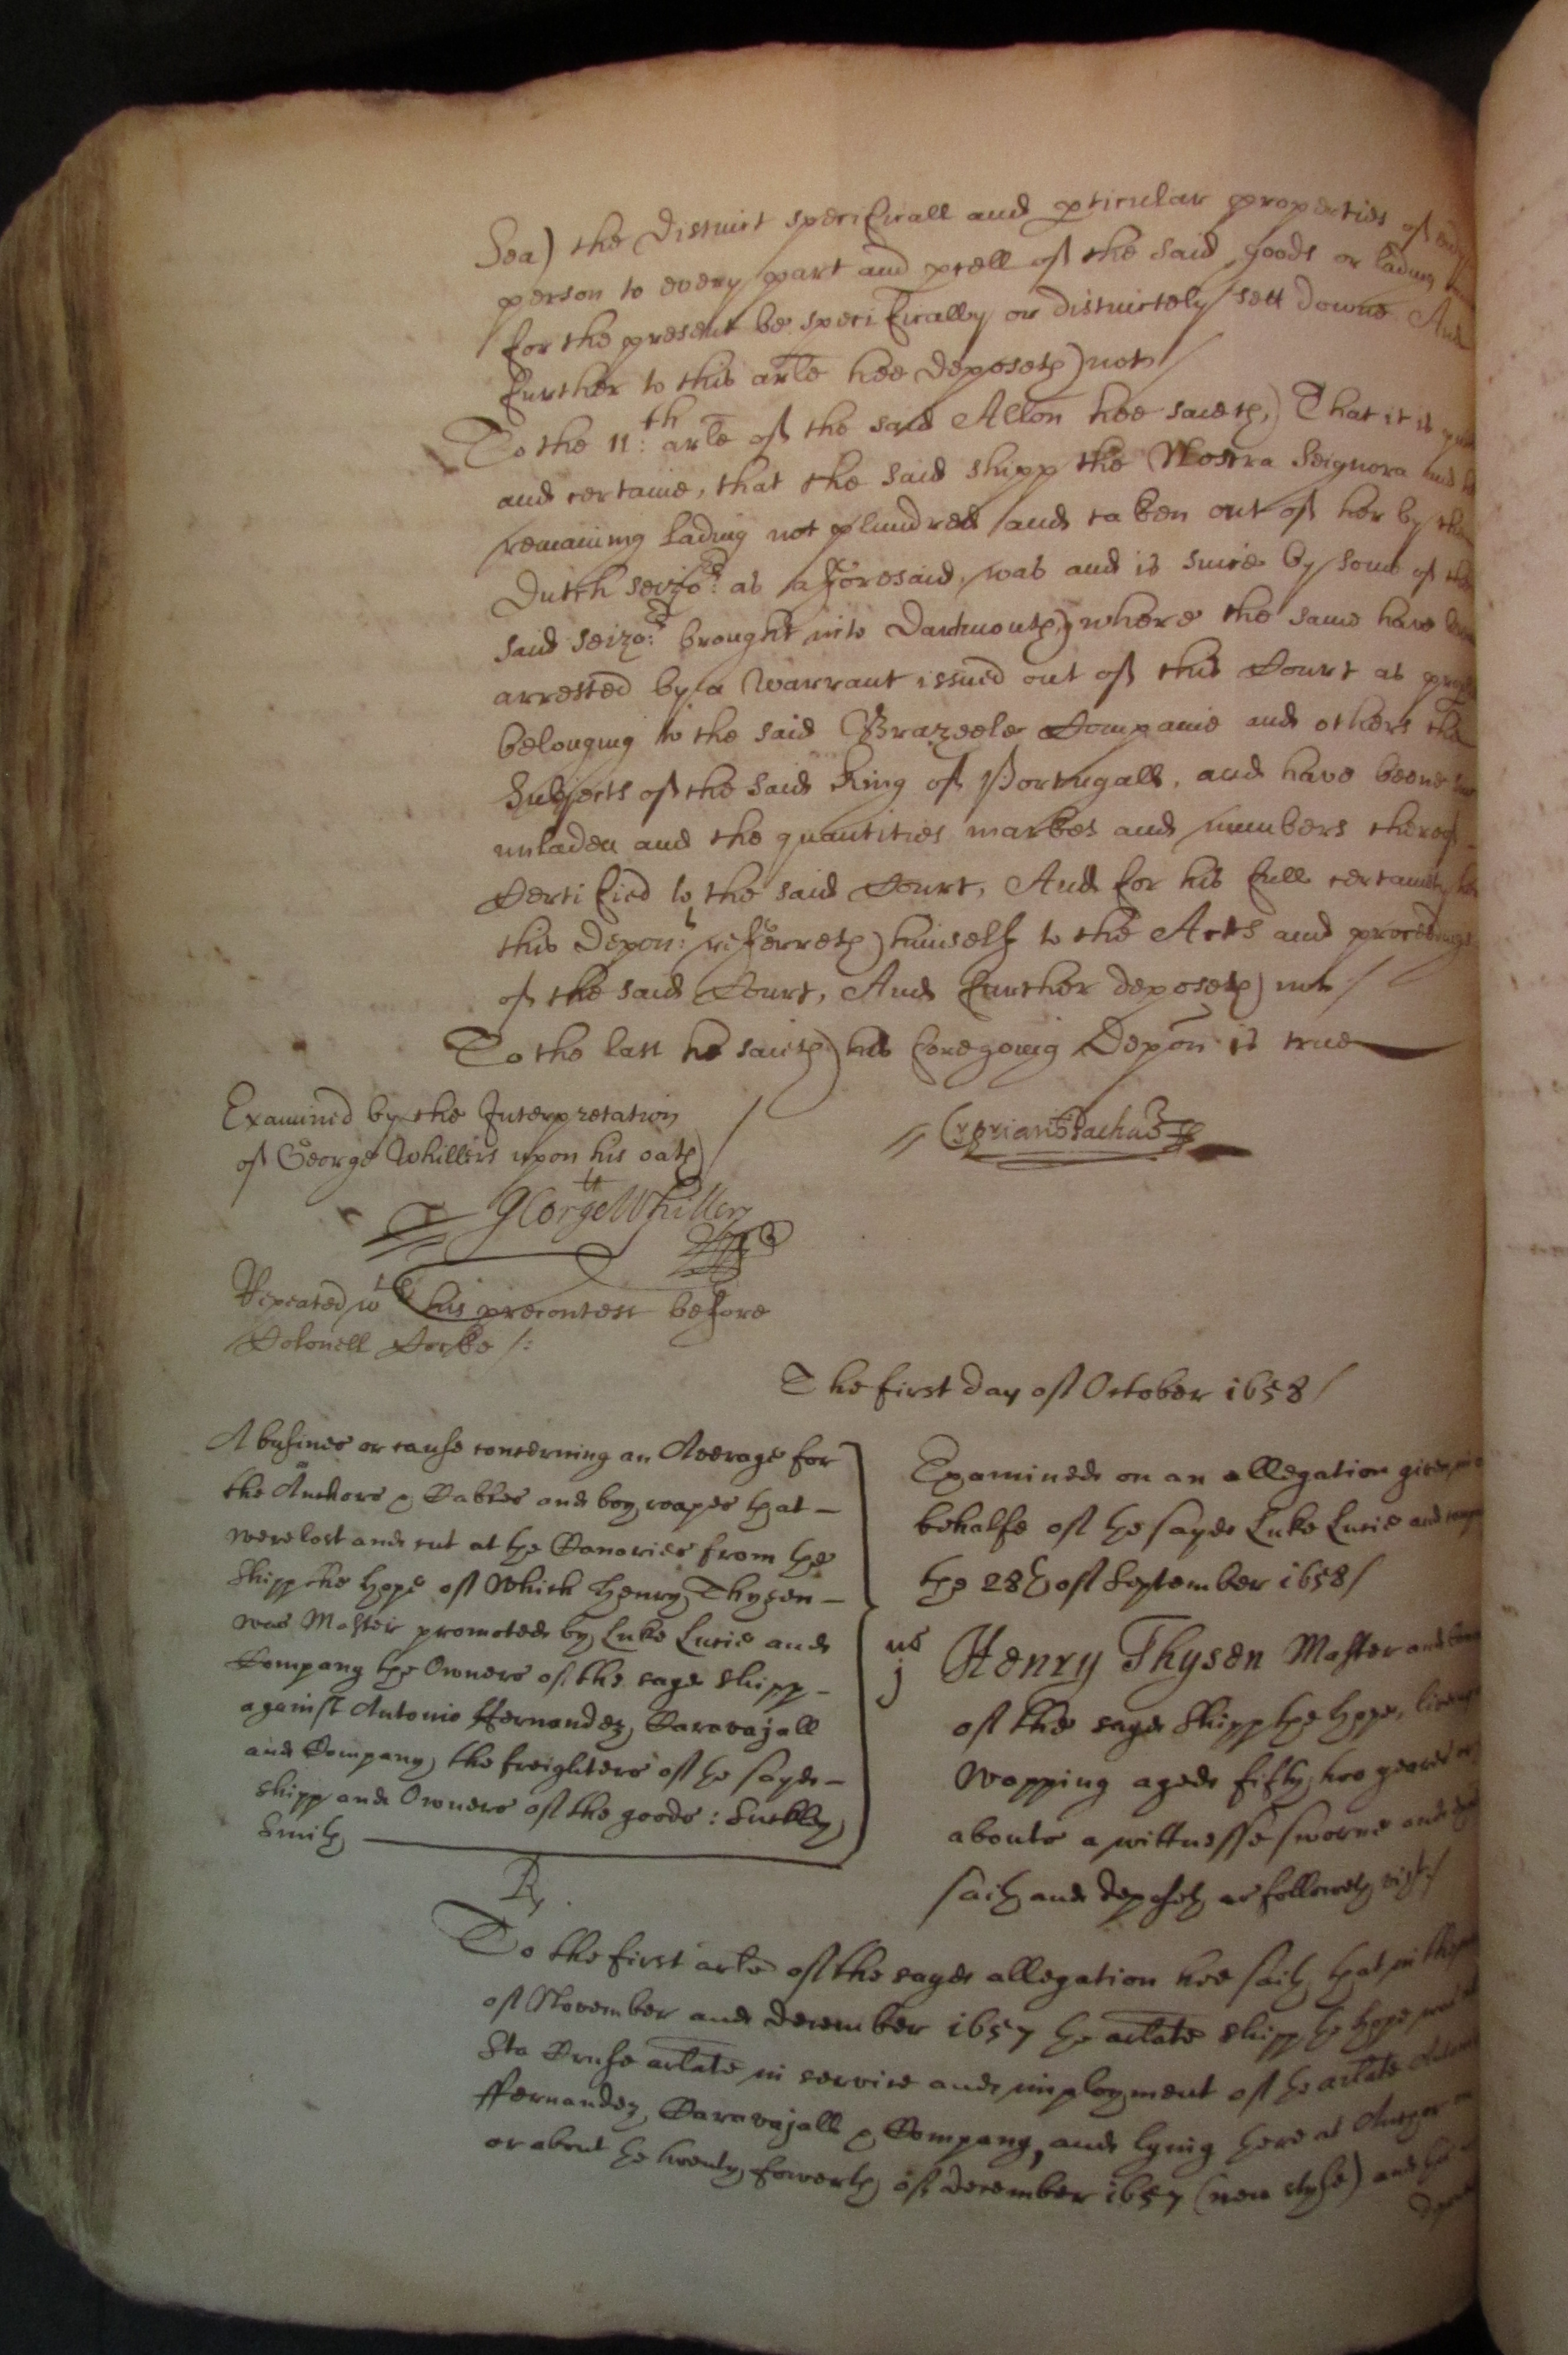 Sea) the distinct specificall and pticular properties of
person to every part and pcell of the said goods or lading
for the present be specifically or distinctely sett downe And
further to this arle hee deposeth not
To the 11:th arle of the said Allon hee saieth, That it is
and certaine, that the said shipp the Nostra Seignora and
remaining lading not plundred and taken out of her by the
Dutch seizo:rs as aforesaid, was and is since by some of the
said seizo:rs brought into Dartmouth, where the same have
arrested by a warrant issued out of this Court as
belonging to the said Brazeele Companie and others the
Subjects of the said King of Portugall, and have beene
unladen and the quantities markes and numbers thereof
Certified to the said Court, And for his full certainty
this depon:t referreth himself to the Acts and proceedings
of the said Court, And further deposeth not
To the last he saieth his foregoing Depon is true
Examined by the Interpretation
of George Whillers upon his oath
George Whillers
Repeated wth his precontest before
Colonell Cocke /:
The first day of October 1658
A busines or cause concerning an Average for
the Anchors & Cables and boy roapes that
were lost and cut at the Canaries from the
Shipp the Hope of which Henry Thysen
was Master promoted by Luke Lucie and
Company the Owners of the sayd shipp
against Antonio ffernandez Caravajall
and Company the freighters of the sayd
shipp and Owners of the goods: Suckley
Smith
Examined on an allegation given
behalfe of the sayd Luke Lucie and
the 28th of September 1658
us
j
Henry Thysen Master and
of the sayd Shipp the Hope,
Wapping aged fifty two yeares
aboute a wittnesse sworne and
saith and deposeth as followeth vizt.
To the first arle of the sayd allegation hee saith that in the
of November and december 1657 the arlate shipp the hope
Sta Cruse arlate in service and imployment of the arlate
ffernandez Caravajall & Company, and lying there at Anchor
or about the twenty fowerth of december 1657 (new style) and